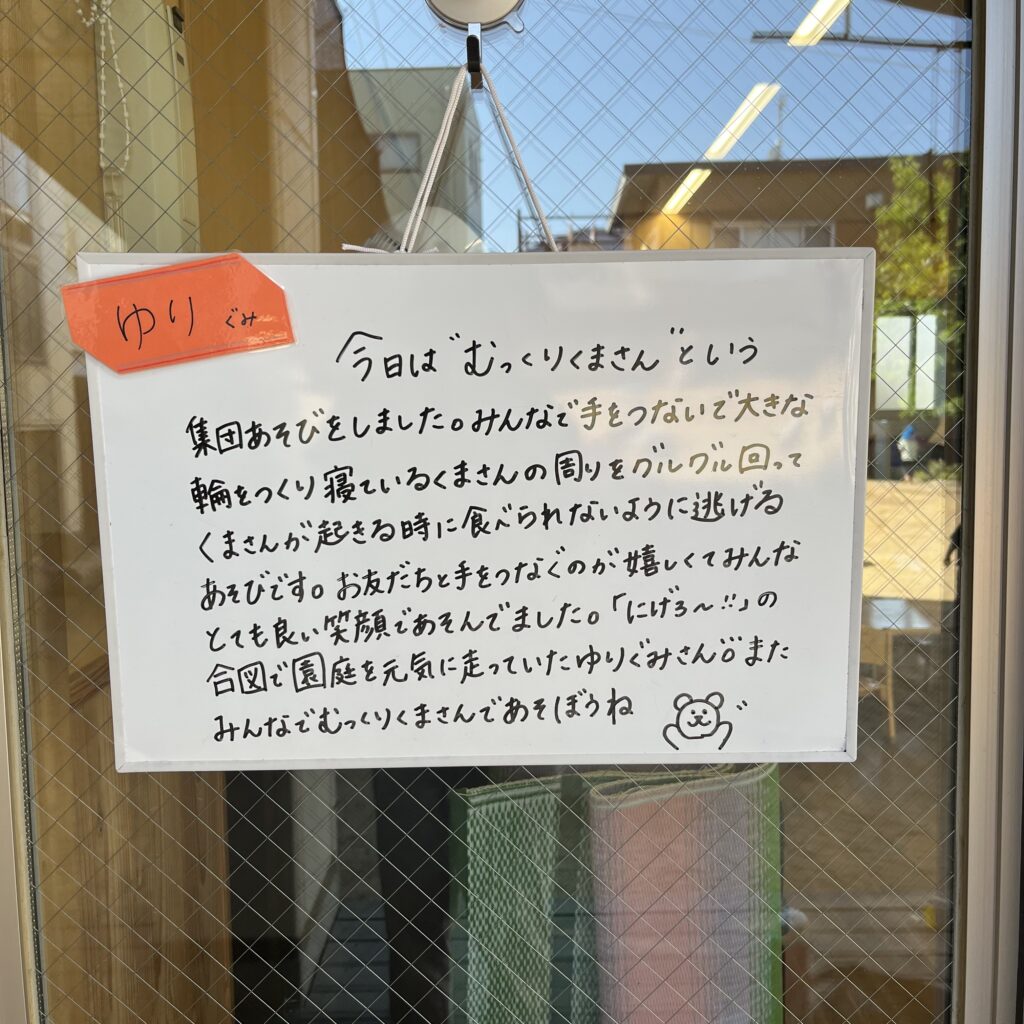 ゆり ぐみ
今日は"むっくりくまさん"という
集団あそびをしました。みんなで手をつないで大きな
輪をつくり寝ているくまさんの周りをグルグル回って
くまさんが起きる時に食べられないように逃げる
あそびです。お友だちと手をつなぐのが嬉しくてみんな
とても良い笑顔であそんでました。「にげろ～!!」の
合図で園庭を元気に走っていたゆりぐみさん また
みんなでむっくりくまさんであそぼうね